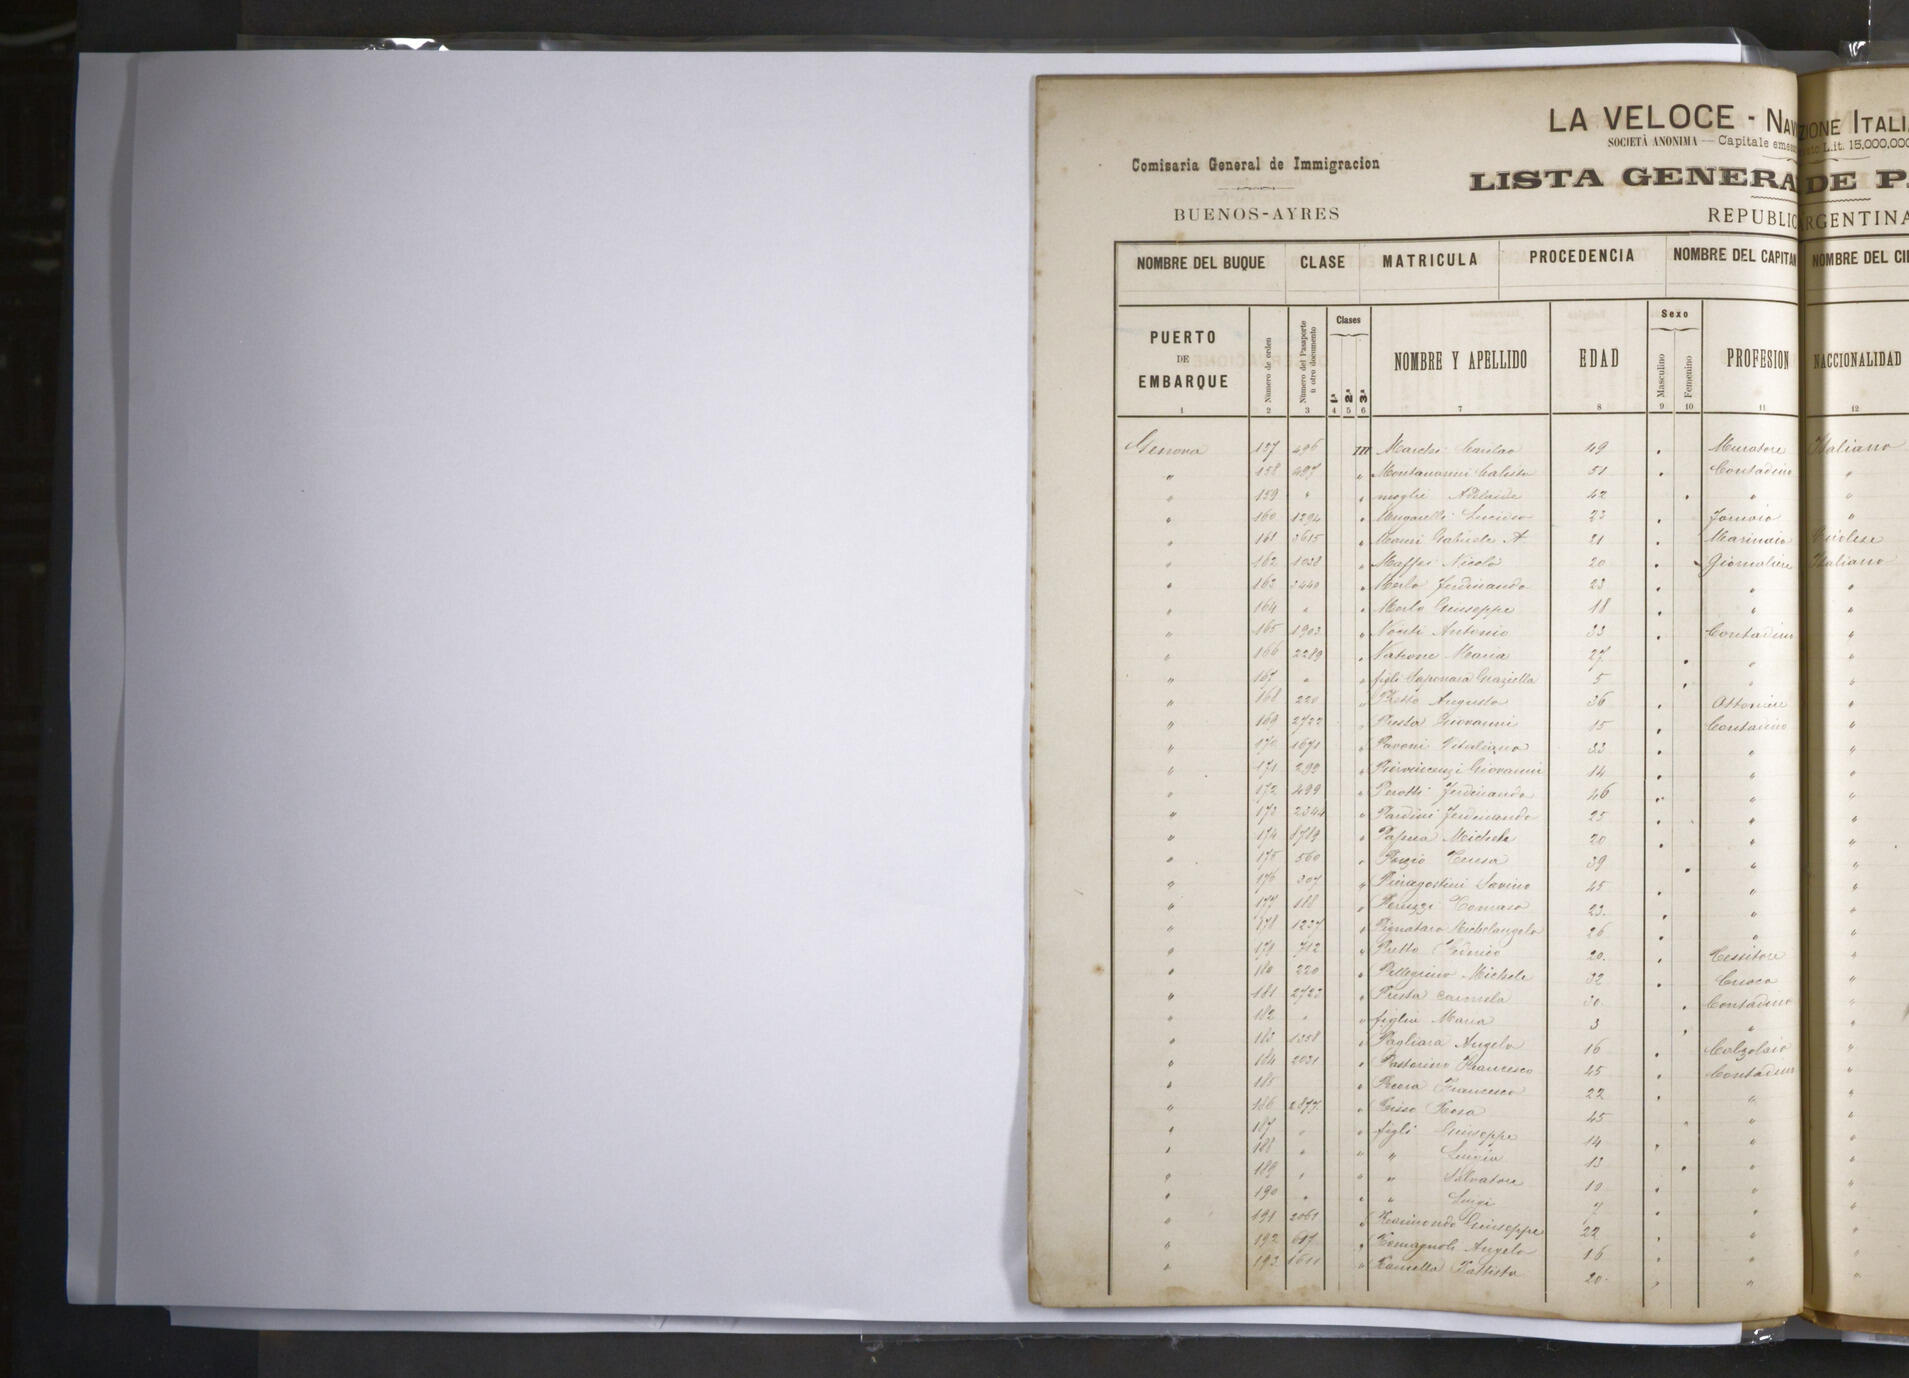 LA VELOCE - NAV ZIONE ITALI
SOCIETÀ ANONIMA — Capitale emes L.it. 15,000,000
Comisaria General de Immigracion
LISTA GENERA DE P
BUENOS-AYRES
REPUBLIC RGENTINA
NOMBRE DEL BUQUE CLASE MATRICULA PROCEDENCIA NOMBRE DEL CAPITAN NOMBRE DEL CI
PUERTO DE EMBARQUE Número de orden Número del Pasaporte ú otro documento Clases 1ª 2ª 3ª NOMBRE Y APELLIDO EDAD Sexo Masculino Femenino PROFESION NACCIONALIDAD
1 2 3 4 5 6 7 8 9 10 11 12
Genova 157 496 III Marchi 49 Muratore Italiano
" 158 497 " 51 . Contadino "
" 159 " " moglie Adelaide 42 . " "
" 160 1294 " 23 . "
" 161 3615 " Gabriele A. 21 . Marinaio
" 162 1038 " Maffei Nicola 20 . Giornaliere Italiano
" 163 3440 " Merlo Ferdinando 23 . " "
" 164 " " Merlo Giuseppe 18 . " "
" 165 1903 " Antonio 33 . Contadino "
" 166 2289 " Maria 27 . " "
" 167 " " figli Saponara Graziella 5 . " "
" 168 220 " Augusto 36 . "
" 169 2722 " Presta Giovanni 15 . Contadino "
" 170 1671 " Pavoni Vitaliano 33 . " "
" 171 299 " Piervincenzi Giovanni 14 . " "
" 172 499 " Perotti Ferdinando 46 . " "
" 173 2344 " Pardini Ferdinando 25 . " "
" 174 1789 " Michele 20 . " "
" 175 560 " Teresa 39 . " "
" 176 307 " Pieragostini Savino 45 . " "
" 177 188 " Peruzzi Tomaso 23 . " "
" 178 1237 " Pignataro Michelangelo 26 . " "
" 179 712 " Pretto 20 . Tessitore "
" 180 220 " Pellegrino Michele 32 . Cuoco "
" 181 2723 " Presta Carmela 30 . Contadino "
" 182 " " figlia Maria 3 . " "
" 183 1358 " Pagliara Angelo 16 . Calzolaio "
" 184 2031 " Pastorino Francesco 45 . Contadino "
" 185 " Francesco 22 . " "
" 186 2877 " Risso Rosa 45 . " "
" 187 " " figli Giuseppe 14 . " "
" 188 " " " 13 . " "
" 189 " " " Salvatore 10 . " "
" 190 " " " Luigi 7 . " "
" 191 2061 " Raimondo Giuseppe 22 . " "
" 192 617 " Romagnoli Angelo 16 . " "
" 193 1611 " Battista 20 . " "